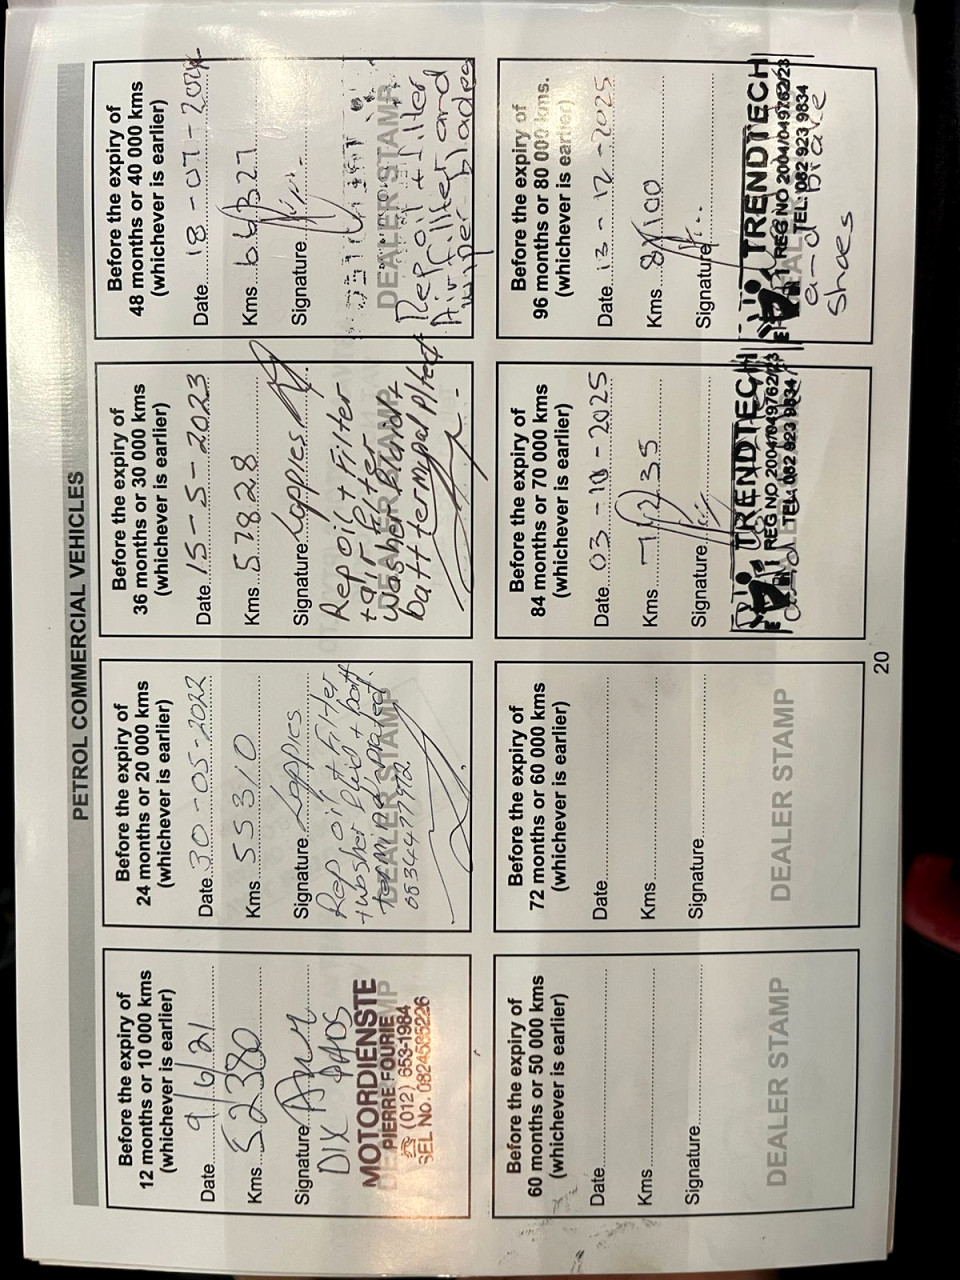 PETROL COMMERCIAL VEHICLES
Before the expiry of
12 months or 10 000 kms
(whichever is earlier)
Date 9/6/21
Kms 52380
Signature
DIX
MOTORDIENSTE
PIERRE FOURIE
(012) 653-1984
SEL No. 0824585226
Before the expiry of
24 months or 20 000 kms
(whichever is earlier)
Date 30-05-2022
Kms 55310
Signature Lappies
Rep oil + Filter
+ Washer fluid + batt
terminal plated.
DEALER STAMP
Before the expiry of
36 months or 30 000 kms
(whichever is earlier)
Date 15-5-2023
Kms 57828
Signature Lappies
Rep oil + Filter
+ air filter
Washer fluid +
DEALER STAMP
batt termynal Plted
Before the expiry of
48 months or 40 000 kms
(whichever is earlier)
Date 18-07-
Kms
Signature
DEALER STAMP
Rep oil + filter
Airfilter and
wiper blades
Before the expiry of
60 months or 50 000 kms
(whichever is earlier)
Date
Kms
Signature
DEALER STAMP
Before the expiry of
72 months or 60 000 kms
(whichever is earlier)
Date
Kms
Signature
DEALER STAMP
Before the expiry of
84 months or 70 000 kms
(whichever is earlier)
Date 03-10-2025
Kms
Signature
TRENDTECH
REG NO 2004/049762/23
TEL: 082 923 9834
Before the expiry of
96 months or 80 000 kms.
(whichever is earlier)
Date 13-12-2025
Kms
Signature
TRENDTECH
REG NO 2004/049762/23
TEL: 082 923 9834
and brake
shoes
20